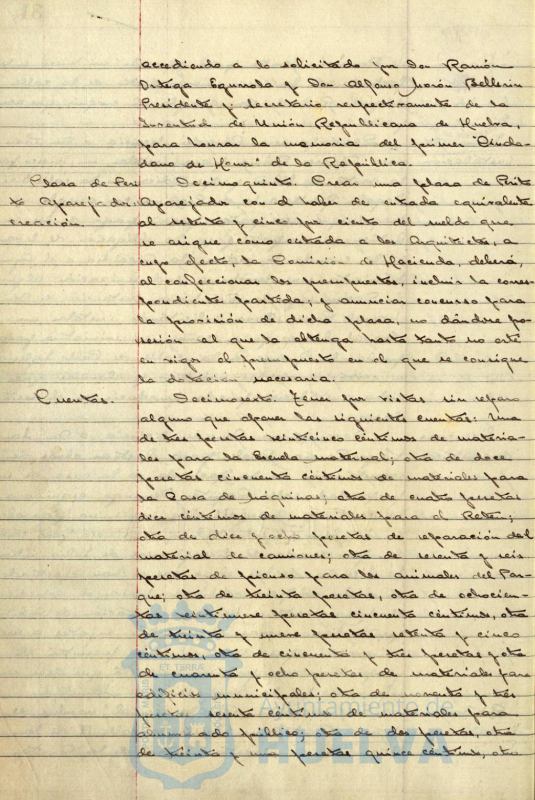 accediendo a lo solicitado por Don Ramón
Ortega Egurrola y Don Alfonso Morón Bellerín
Presidente y Secretario respectivamente de la
Juventud de Unión Republicana de Huelva,
para honrar la memoria del primer "Ciuda-
dano de Honor" de la República.
Plaza de Peri-
to Aparejador:
creación.
Decimoquinto. Crear una plaza de Perito
Aparejador con el haber de entrada equivalente
al setenta y cinco por ciento del sueldo que
se asigne como entrada a los Arquitectos, a
cuyo efecto, la Comisión de Hacienda, deberá,
al confeccionar los presupuestos, incluir la corres-
pondiente partida; y anunciar concurso para
la provisión de dicha plaza, no dándose po-
sesión al que la obtenga hasta tanto no esté
en vigor el presupuesto en el que se consigne
la dotación necesaria.
Cuentas.
Decimosexto. Tener por vistas sin reparo
alguno que oponer las siguientes cuentas: Una
de tres pesetas veinticinco céntimos de materia-
les para la Escuela maternal; otra de doce
pesetas cincuenta céntimos de materiales para
la Casa de Máquinas; otra de cuatro pesetas
diez céntimos de materiales para el Retén;
otra de diez y ocho pesetas de reparación del
material de camiones; otra de sesenta y seis
pesetas de pienso para los animales del Par-
que; otra de treinta pesetas, otra de ochocien-
tas veintinueve pesetas cincuenta céntimos, otra
de treinta y nueve pesetas setenta y cinco
céntimos otra de cincuenta y tres pesetas y otra
de cuarenta y ocho pesetas de materiales para
edificios municipales; otra de noventa y tres
pesetas sesenta céntimos de materiales para
alumbrado público; otra de dos pesetas, otra
de treinta y una pesetas quince céntimos, otra
ET TERRÆ
Ayuntamiento de
HUELVA